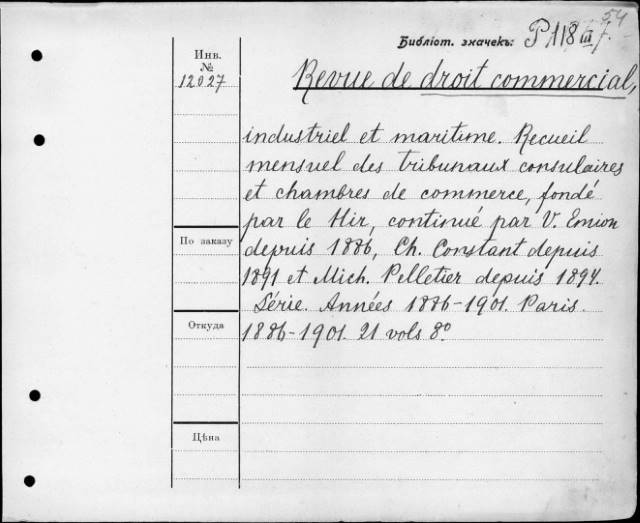 54
Библіот. значекъ: P 118 III/7.
Инв.
№
12027
Revue de droit commercial,
industriel et maritime. Recueil
mensuel des tribunaux consulaires
et chambres de commerce, fondé
par le Hir, continué par V. Emion
depuis 1886, Ch. Constant depuis
1891 et Mich. Pelletier depuis 1894.
Série. Années 1886-1901. Paris.
1886-1901. 21 vols 8º
По заказу
Откуда
Цѣна